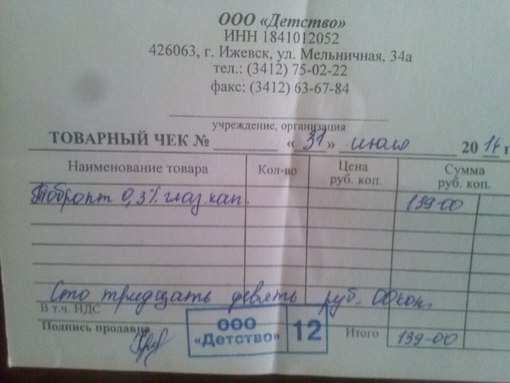 ООО «Детство»
ИНН 1841012052
426063, г. Ижевск, ул. Мельничная, 34а
тел.: (3412) 75-02-22
факс: (3412) 63-67-84
учреждение, организация
ТОВАРНЫЙ ЧЕК № « 31 » июля 2014 г
Наименование товара Кол-во Цена руб. коп. Сумма руб. коп.
Тобропт 0,3% глаз. кап. 139-00
Сто тридцать девять руб. 00 коп.
В т.ч. НДС
Подпись продавца ООО «Детство» 12 Итого 139-00